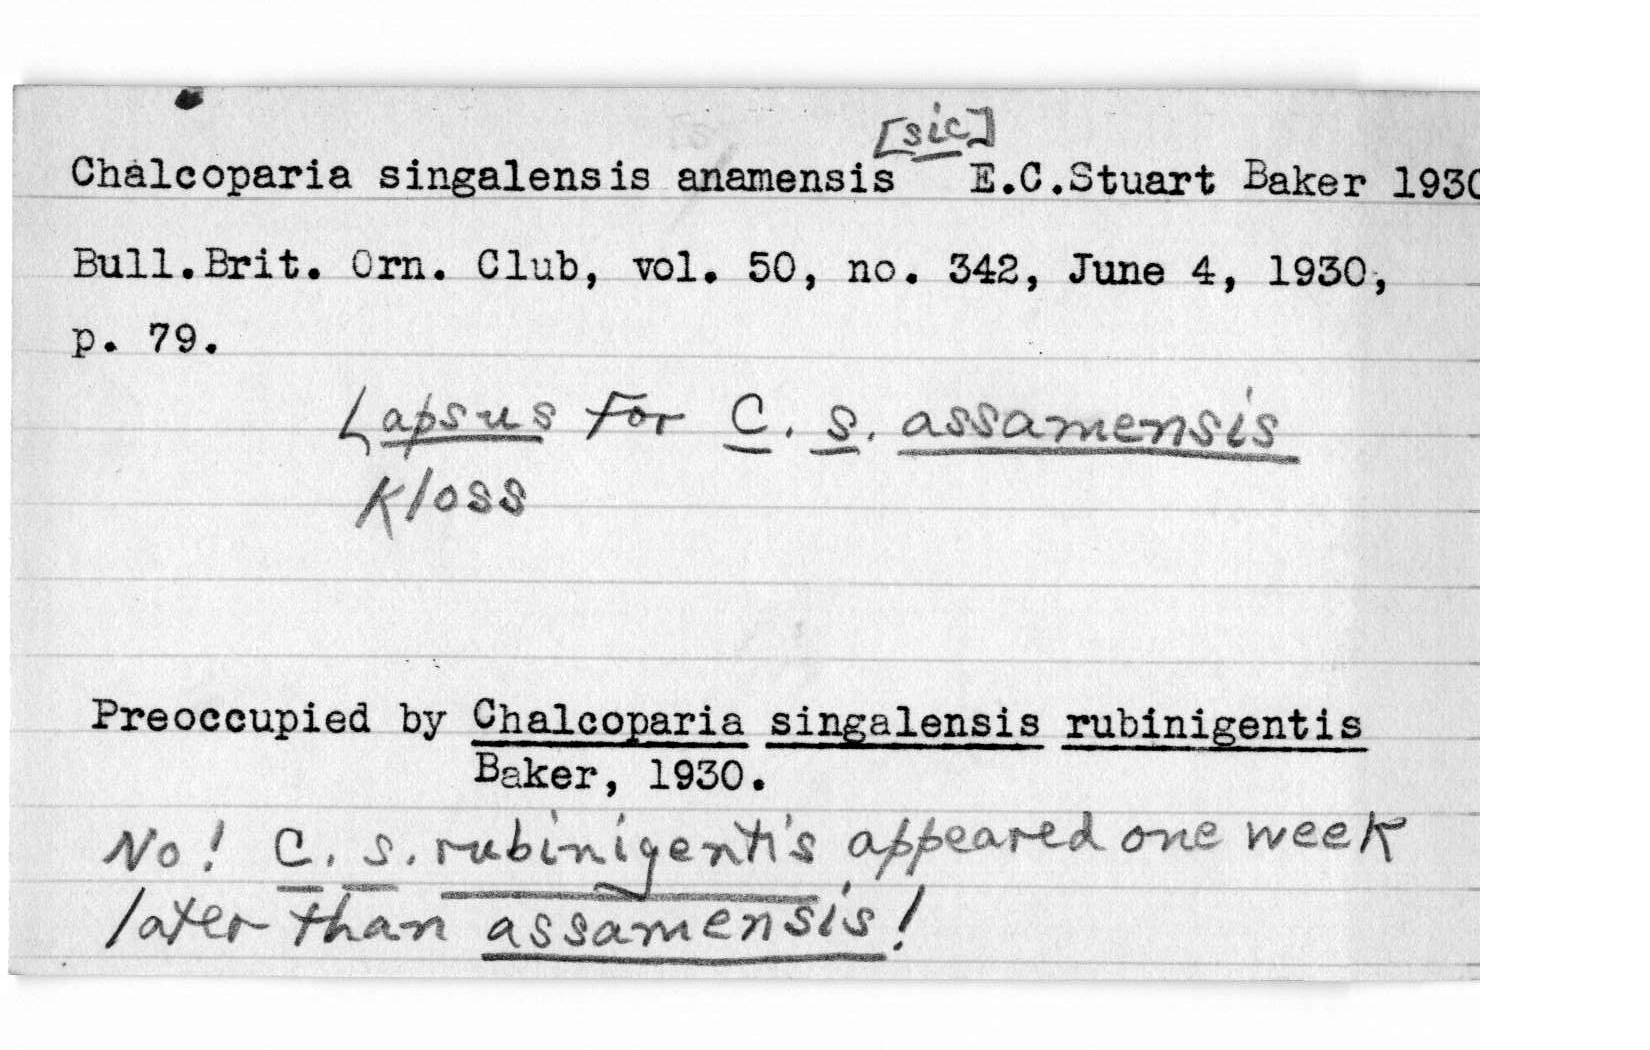 [sic]
Chalcoparia singalensis anamensis E.C.Stuart Baker 1930
Bull.Brit. Orn. Club, vol. 50, no. 342, June 4, 1930,
p. 79.
Lapsus for C. s. assamensis
Kloss
Preoccupied by Chalcoparia singalensis rubinigentis
Baker, 1930.
No! C. s. rubinigentis appeared one week
later than assamensis!